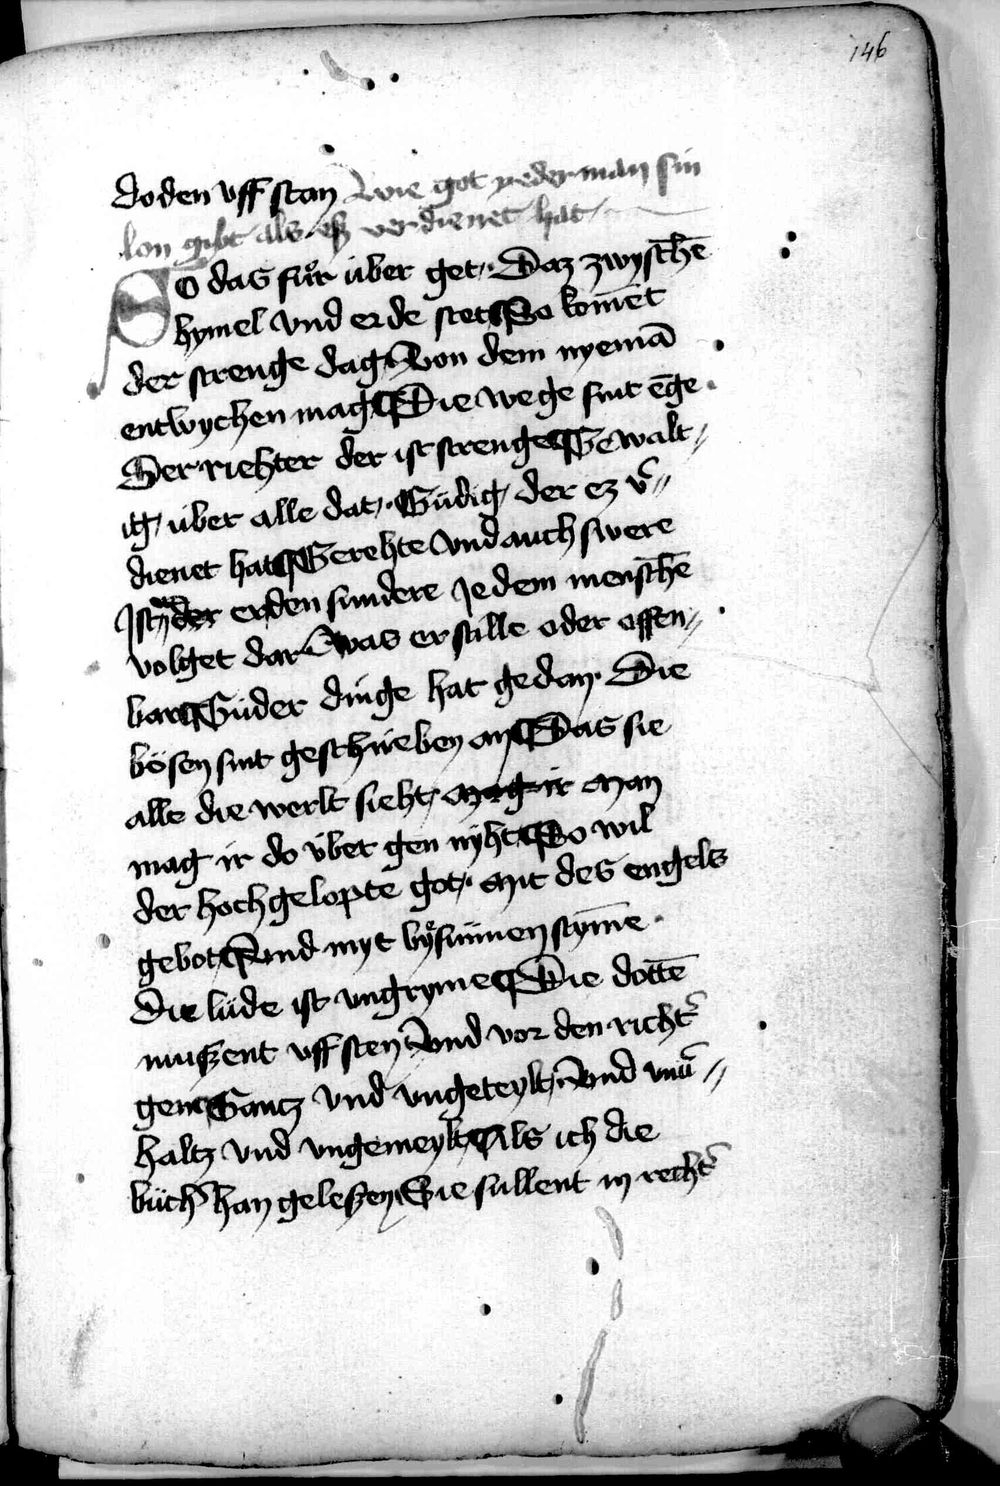 146
doden vff stan Wie got yederman sin
lon gibt als eß verdienet hat
SO das fůr uber get. Daz zwyschē
hymel vnd erde stet So komēt
der strenge dag Von dem nyemā
entwychen mag Die wege sint ēge
Der riehter der ist strenge Gewalt
ig uber alle dat. Güdig der ez v̄
dienet hat Gerehte vnd auch swere
Ist er den sundere Jedem menschē
volget dar Was er stille oder offen
bar Güder dinge hat gedan. Die
bösen sint geschrieben an Das sie
alle die werlt sieht, mag ir Man
mag ir do über gen nyht So wil
der hochgelopte got. Mit des engels
gebot Vnd myt bysunnen styme
Die lüde ist vngryme Die dottē
mußent vff sten Vnd vor den richt'
gen Gantz vnd vngeteylt Vnd vnu'
haltz vnd vngemeylt Als ich die
büch' han geleßen Sie sullent in recht'